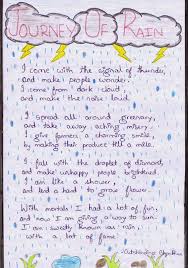 JOURNEY OF RAIN
I come with the signal of thunder,
and make people wonder.
I come from dark cloud,
and make the noise loud.
I spread all around greenary,
and take away aching misery.
I give farmers a charming smile,
by making their produce till a mile.
I fall with the droplet of diamond,
and make unhappy people brightened.
I am like a shower,
and led a hand to grow flower.
With mortals I had a lot of fun,
and now I am giving a way to sun.
I am sweetly known as rain,
with a lot of fame.